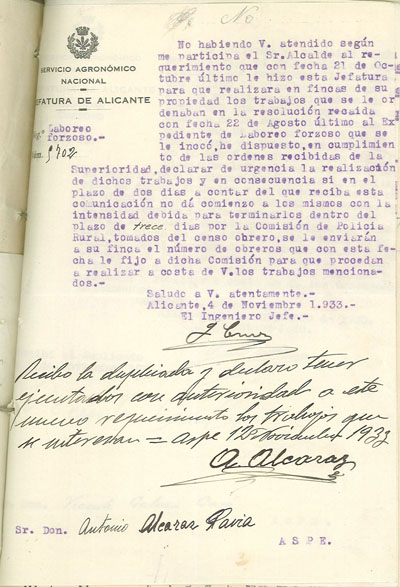 No
SERVICIO AGRONÓMICO
NACIONAL
JEFATURA DE ALICANTE
Laboreo
forzoso.-
Núm. 5702
No habiendo V. atendido según
me participa el Sr.Alcalde al re-
querimiento que con fecha 21 de Oc-
tubre último le hizo esta Jefatura
para que realizara en fincas de su
propiedad los trabajos que se le or-
denaban en la resolución recaida
con fecha 22 de Agosto último al Ex-
pediente de Laboreo forzoso que se
le incoó,he dispuesto,en cumplimien-
to de las ordenes recibidas de la
Superioridad,declarar de urgencia la realización
de dichos trabajos y en consecuencia si en el
plazo de dos dias a contar del que reciba esta
comunicación no dá comienzo a los mismos con la
intensidad debida para terminarlos dentro del
plazo de trece dias por la Comisión de Policia
Rural,tomados del censo obrero,se le enviarán
a su finca el número de obreros que con esta fe-
cha le fijo a dicha Comisión para que procedan
a realizar a costa de V.los trabajos menciona-
dos.-
Saludo a V. atentamente.-
Alicante,4 de Noviembre 1.933.-
El Ingeniero Jefe.-
Recibo la duplicada y declaro tener
ejecutados con anterioridad a este
nuevo requerimiento los trabajos que
se interesan = Aspe 12 Noviembre 1933
A. Alcaraz
Sr. Don. Antonio Alcaraz Pavia
ASPE.